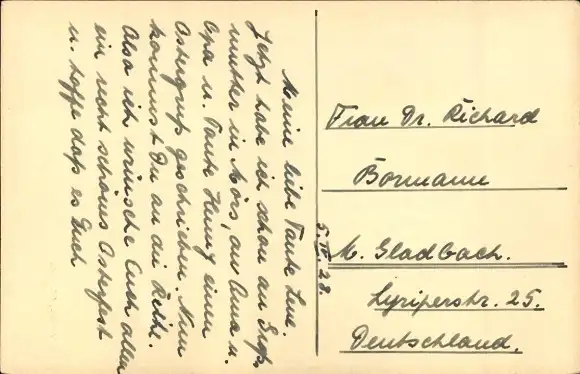 Meine liebe Tante Lene.
Jetzt habe ich schon an Groß-
mutter in Mörs, an Oma u.
Opa u. Tante Henny einen
Ostergruß geschrieben. Nun
kommst Du an die Reihe.
Also ich wünsche Euch allen
ein recht schönes Osterfest
u. hoffe daß es Euch
5. IV. 28.
Frau Dr. Richard
Bormann
M. Gladbach.
Lyriperstr. 25.
Deutschland.